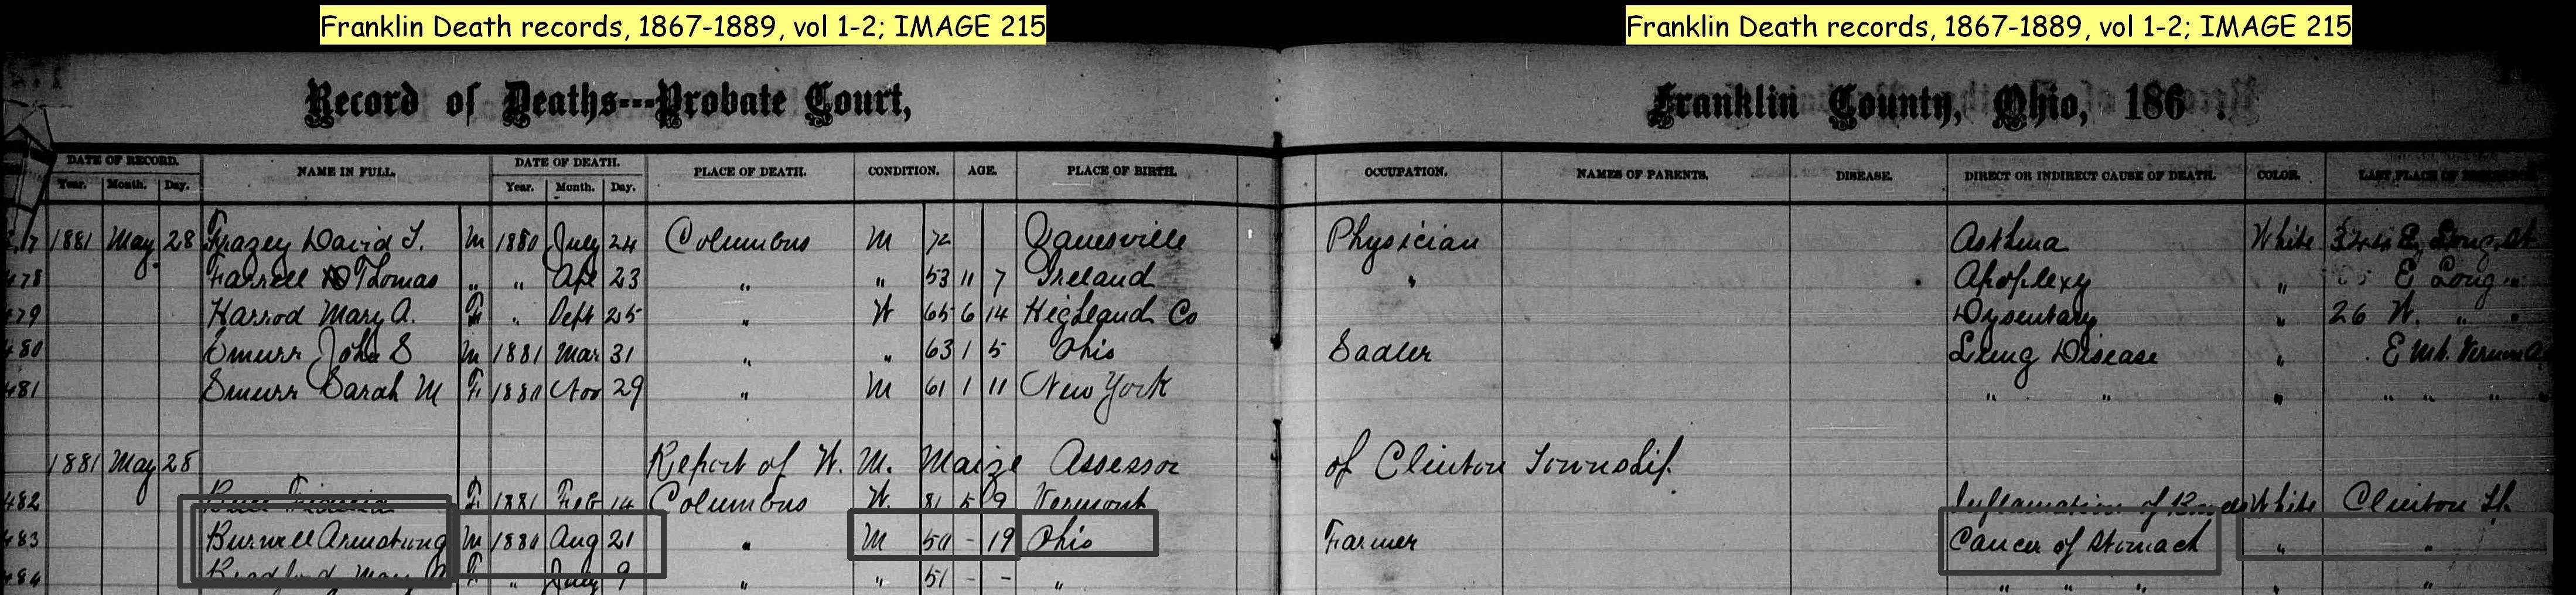 Franklin Death records, 1867-1889, vol 1-2; IMAGE 215 Franklin Death records, 1867-1889, vol 1-2; IMAGE 215
Record of Deaths---Probate Court, Franklin County, Ohio, 186 .
DATE OF RECORD. NAME IN FULL. DATE OF DEATH. PLACE OF DEATH. CONDITION. AGE. PLACE OF BIRTH. OCCUPATION. NAMES OF PARENTS. DISEASE. DIRECT OR INDIRECT CAUSE OF DEATH. COLOR. LAST PLACE OF
Year. Month. Day. Year. Month. Day.
1881 May 28 Frazey David M 1880 July 24 Columbus M 72 Zanesville Physician Asthma White E Long St
478 Farrell Thomas " " Apl 23 " " 53 11 7 Ireland " Apoplexy " E Long "
479 Harrod Mary A. F " Sept 25 " W 65 6 14 Highland Co Dysentary " 26 W. " "
480 Smurr John S M 1881 Mar 31 " " 63 1 5 Ohio Sadler Lung Disease " E Mt. Vernon
481 Smurr Sarah M F 1880 Nov 29 " M 61 1 11 New York " " " " " " "
1881 May 28 Report of W. M. Maize Assessor of Clinton Township.
482 F 1881 Feb 14 Columbus W. 81 5 9 Vermont Inflamation of Bowels White Clinton
483 Burwell Armstrong M 1880 Aug 21 " M 50 - 19 Ohio Farmer Cancer of Stomach " "
484 Bradford Mary A F " July 9 " " 51 - - " " " " " "